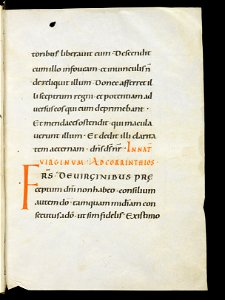 toribus liberauit eum · Descendit
cum illo in foueam · et in uinculis n̄
dereliquit illum · Donec afferret il
li sceptrum regni · et potentiam ad
uersus eos qui eum deprimebant ·
Et mendaces ostendit · qui macula
uerunt illum · Et dedit illi clarita
tem aeternam · dn̄s ds̄ nr̄ · IN NAT
VIRGINUM · AD CORINTHIOS
FRS̄ DE UIRGINIBUS PRE
ceptum dn̄i non habeo · consilium
autem do · tamquam misd̄iam con
secutus a dō · ut sim fidelis · Existimo